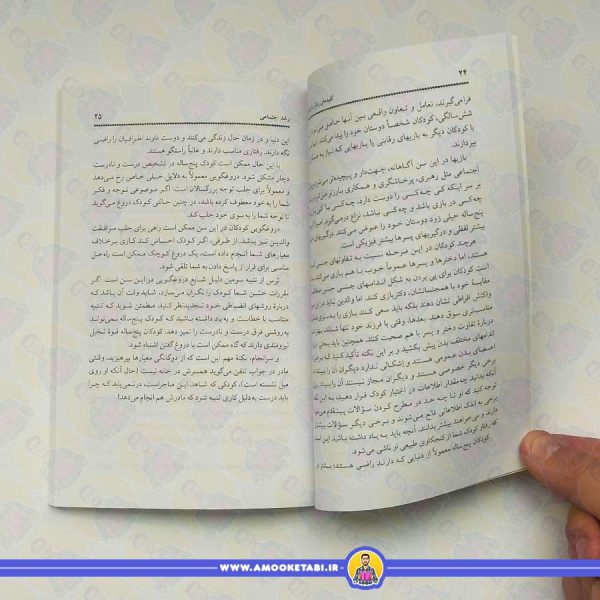 ۲۴
کلیدهای
فرامی‌گیرند، تعامل و تعاون واقعی بین آنها حاصل
شش‌سالگی، کودکان شخصاً دوستان خود را پیدا می‌کنند
با کودکان دیگر به بازیهای رقابتی یا بازیهایی که نیاز به
بپردازند.
بازیها در این سن آگاهانه، جهت‌دار و پیچیده‌تر می‌شود
اجتماعی مثل رهبری، پرخاشگری و همکاری بارزتر
بر سر اینکه کی چه‌کسی را دوست دارد، چه‌کسی با کی
چه‌کسی در بازی باشد و چه‌کسی نباشد، نزاع درمی‌گیرد
پنج‌ساله خیلی زود دوستان خود را عوض می‌کنند. درگیریهای
بیشتر لفظی و درگیریهای پسرها بیشتر فیزیکی است.
هرچند کودکان در این مرحله نسبت به تفاوتهای جنسی
هستند، اما دخترها و پسرها معمولاً خوب با هم بازی می‌کنند
است کودکان برای پی بردن به شکل اندامهای جنسی
مقایسهٔ خود با همجنسانشان، دکتربازی کنند. اما والدین نباید
واکنش افراطی نشان دهند بلکه باید سعی کنند بازی را به
متناسب‌تری سوق دهند. بعدها، وقتی با فرزند خود تنها شدند
دربارهٔ تفاوت دختر و پسر با هم صحبت کنند. همچنین باید
قسمتهای مختلف بدن پیش بکشید و بر این نکته تأکید کنید که
اعضای بدن عمومی هستند و اشکالی ندارد دیگران آن را ببینند
برخی دیگر خصوصی هستند و دیگران مجاز نیستند آن را ببینند
آنکه بدانید چه‌مقدار اطلاعات در اختیار کودک قرار دهید، به
توجه کنید که او تا چه حد در مطرح کردن سؤالات پیشقدم
برخی به اندک اطلاعاتی قانع می‌شوند و برخی دیگر سؤالات بیشتری
دارند و می‌خواهند بیشتر بدانند. آنچه باید به یاد داشته باشید این است
که رفتار کودک شما از کنجکاوی طبیعی او ناشی می‌شود.
کودکان پنج‌ساله معمولاً از دنیایی که دارند راضی هستند؛
رشد اجتماعی
۲۵
این دنیا و در زمان حال زندگی می‌کنند و دوست دارند اطرافیان را راضی
نگه دارند. رفتاری مناسب دارند و غالباً راستگو هستند.
با این حال ممکن است کودک پنج‌ساله در تشخیص درست و نادرست
دچار مشکل شود. دروغگویی معمولاً به دلایل خیلی خاص رخ می‌دهد
و معمولاً برای جلب توجه بزرگسالان است. اگر موضوعی توجه و فکر
شما را به خود معطوف کرده باشد، در چنین حالتی کودک دروغ می‌گوید
تا توجه شما را به سوی خود جلب کند.
دروغگویی کودکان در این سن ممکن است راهی برای جلب موافقت
والدین نیز باشد. از طرفی، اگر کودک احساس کند کاری برخلاف
معیارهای شما انجام داده است، یک دروغ کوچک ممکن است راه‌حل
مناسبی برای فرار از پاسخ دادن به شما تلقی شود.
ترس از تنبیه سومین دلیل شایع دروغگویی در این سن است. اگر
مقررات خشن شما کودک را نگران می‌سازد، شاید وقت آن باشد که
دربارهٔ روشهای انضباطی خود تجدیدنظر کنید. مطمئن شوید که تنبیه
متناسب با خطاست. و به یاد داشته باشید که کودک پنج‌ساله نمی‌تواند
به‌روشنی فرق درست و نادرست را تمیز دهد. کودکان پنج‌ساله قوهٔ تخیل
نیرومندی دارند که گاه ممکن است با دروغ گفتن اشتباه شود.
و سرانجام، نکتهٔ مهم این است که از دوگانگی معیارها بپرهیزید. وقتی
مادر در جواب تلفن می‌گوید همسرش در خانه نیست (حال آنکه او روی
مبل نشسته است)، کودکی که شاهد این ماجراست، درنمی‌یابد که چرا
باید درست به‌دلیل کاری تنبیه شود که مادرش هم انجام می‌دهد!
WWW.AMOOKETABI.IR